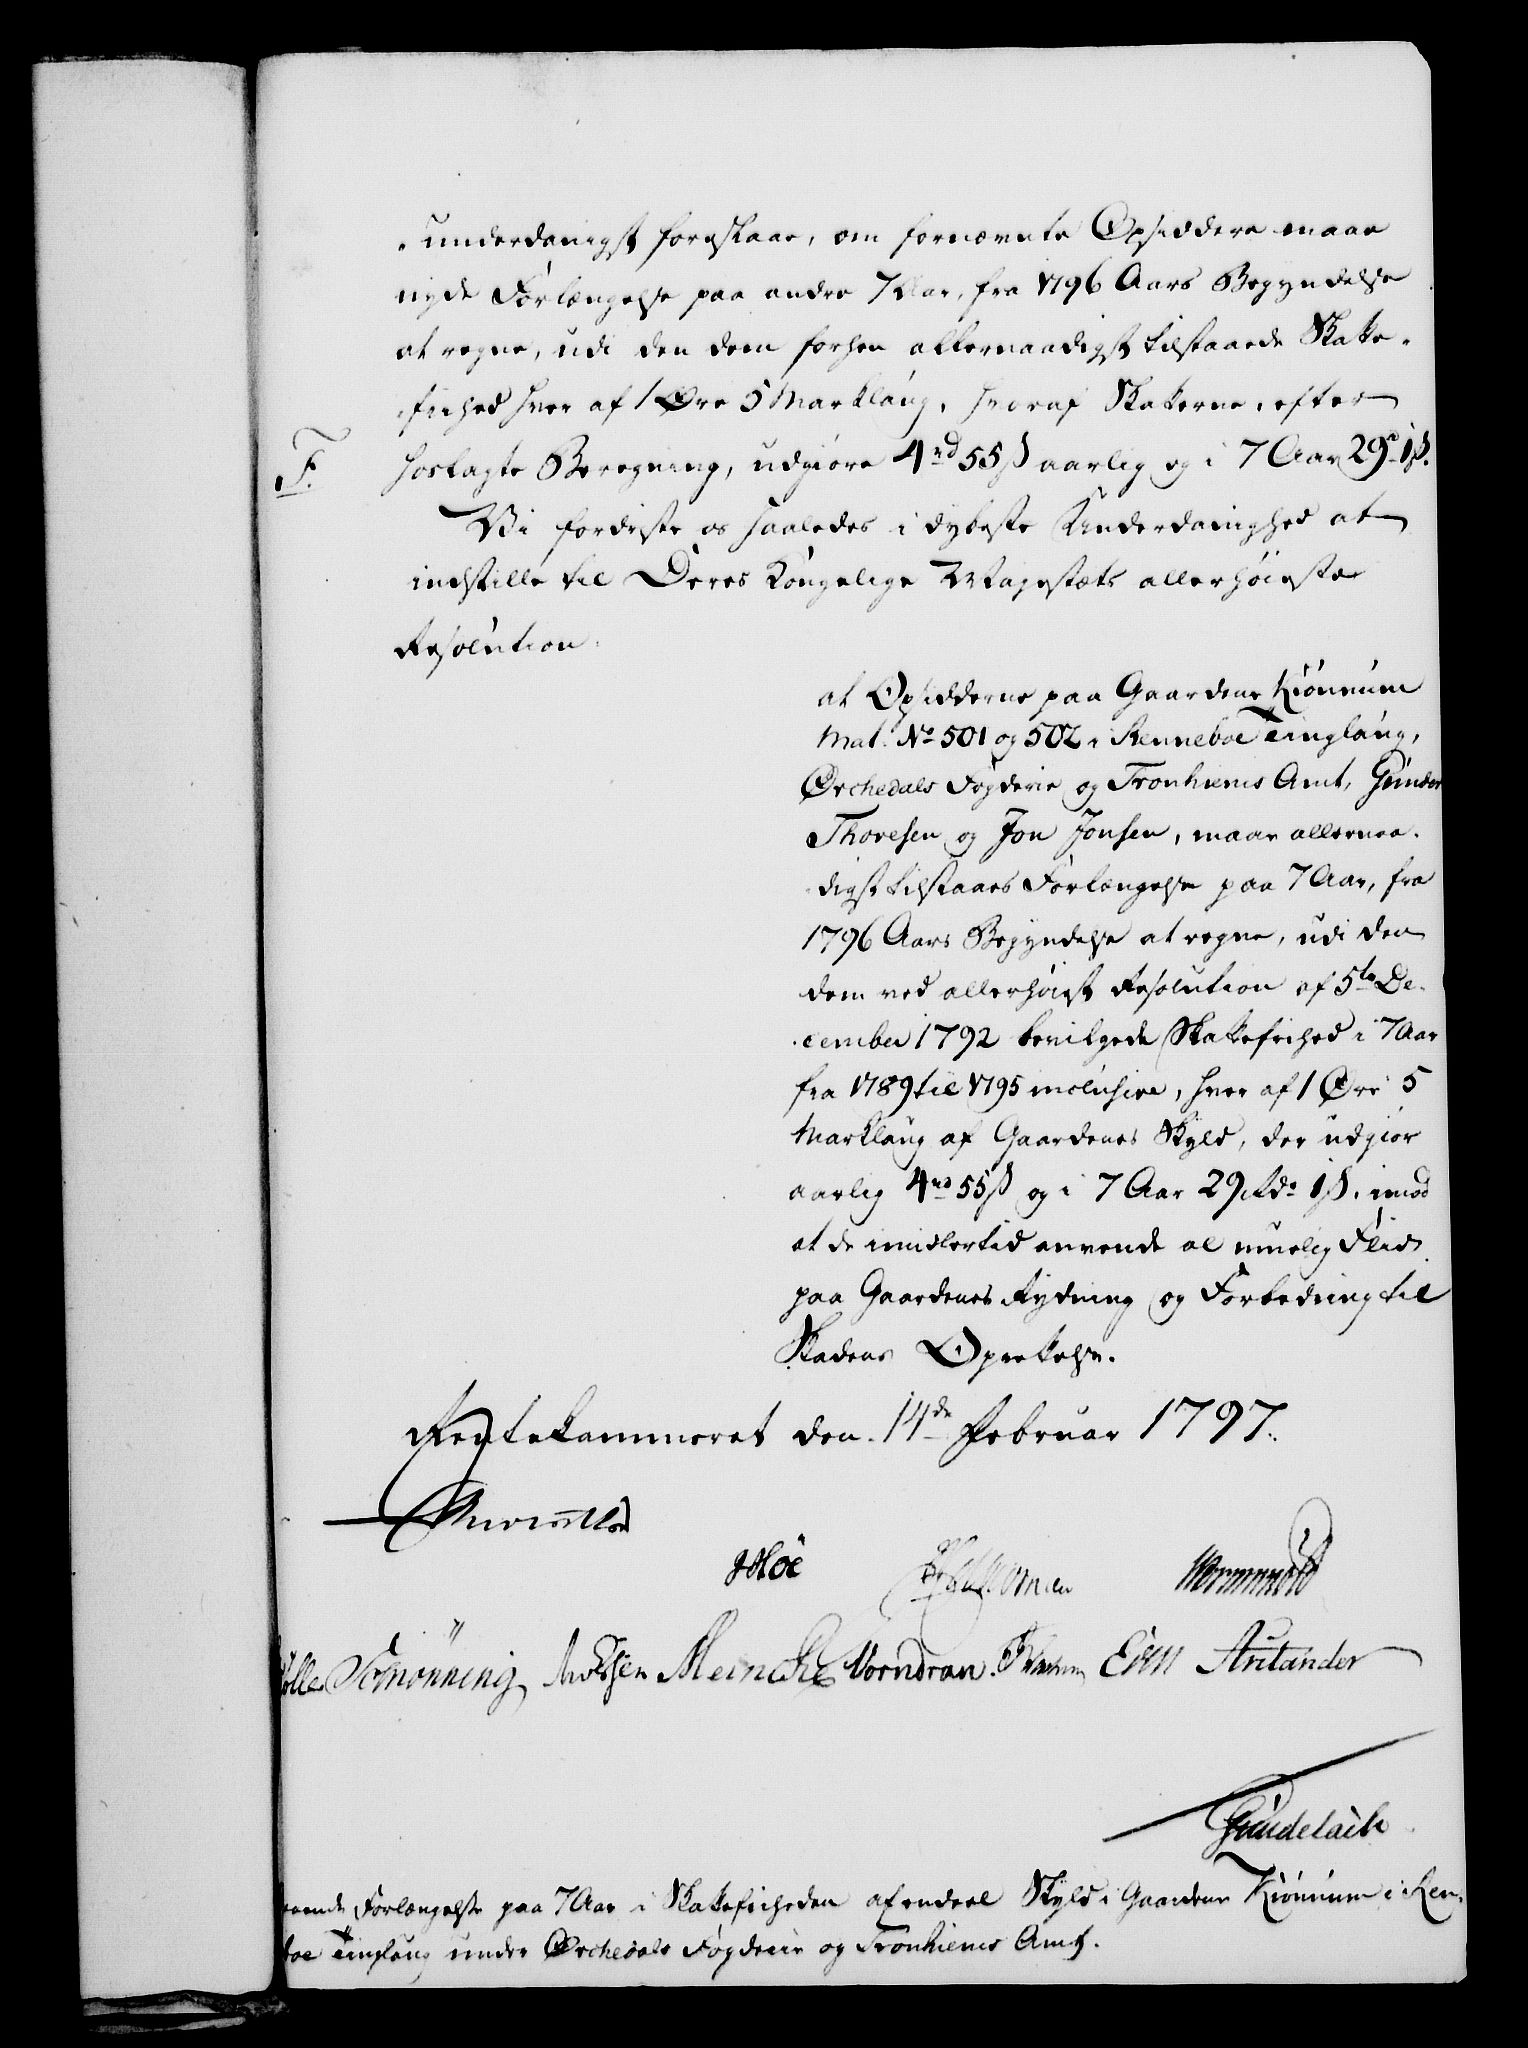 underdanigst foreslaae, om fornævnte Opsiddere maae
nyde Forlængelse paa andre 7 Aar, fra 1796 Aars Begyndelse
at regne, udi den dem forhen allernaadigst tilstaaede Skatte-
frihed hver af 1 Øre 5 Marklaug, hvoraf Skatterne, efter
F. hoslagte Beregning, udgiøre 4 rd 55 ß aarlig og i 7 Aar 29 rd 1 ß.
Vi fordriste os saaledes i dybeste Underdanighed at
indstille til Deres Kongelige Majestæts allerhøieste
Resolution:
at Opsidderne paa Gaarden Kiönnum
Mat. No 501 og 502 i Renneboe Tinglaug,
Ørchedals Fogderie og Tronhiems Amt, Gunder
Thoresen og Jon Jonsen, maae allernaa-
digst tilstaaes Forlængelse paa 7 Aar, fra
1796 Aars Begyndelse at regne, udi den
dem ved allerhöiest Resolution af 5te De-
cember 1792 bevilgede Skattefrihed i 7 Aar
fra 1789 til 1795 inclusive, hver af 1 Øre 5
Marklaug af Gaardenes Skyld, der udgiør
aarlig 4 rd 55 ß og i 7 Aar 29 Rd. 1 ß, imod
at de imidlertid anvende al muelig Fliid
paa Gaardenes Rydning og Forbedring til
Skadens Oprettelse.
Rentekammeret den 14de Februar 1797.
Höe Wormskiold
Schönning Meincke Vorndran Eeen
Gundelach
Forlængelse paa 7 Aar i Skattefriheden af endeel Skyld i Gaarden Kiönnum i Ren-
boe Tinglaug under Ørchedals Fogderie og Tronhiems Amt.